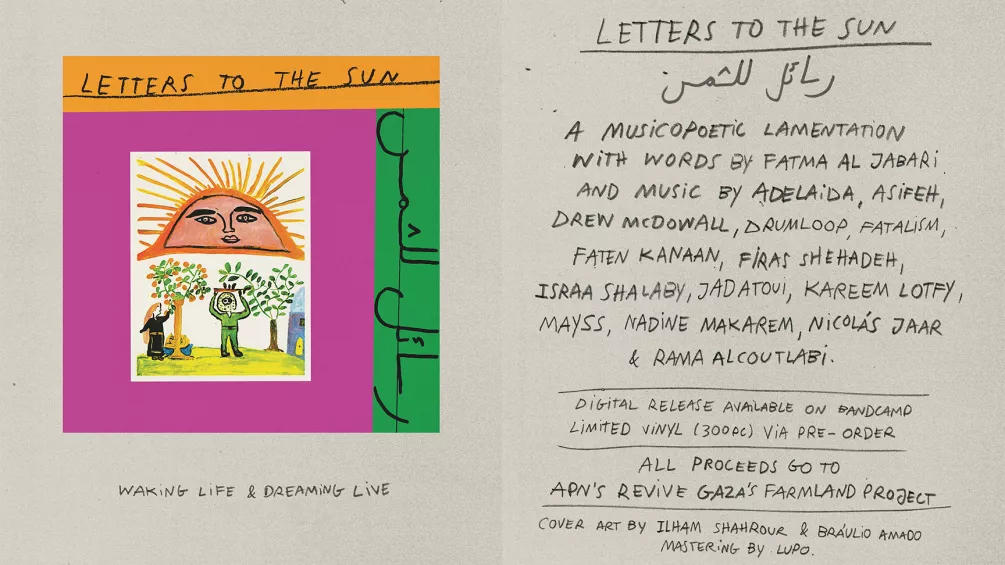 LETTERS TO THE SUN
رسائل للشمس
WAKING LIFE & DREAMING LIVE
LETTERS TO THE SUN
رسائل للشمس
A MUSICOPOETIC LAMENTATION
WITH WORDS BY FATMA AL JABARI
AND MUSIC BY ADELAIDA, ASIFEH,
DREW MCDOWALL, DRUMLOOP, FATALISM,
FATEN KANAAN, FIRAS SHEHADEH,
ISRAA SHALABY, JAD ATOUI, KAREEM LOTFY,
MAYSS, NADINE MAKAREM, NICOLÁS JAAR
& RAMA ALCOUTLABI.
DIGITAL RELEASE AVAILABLE ON BANDCAMP
LIMITED VINYL (300PC) VIA PRE-ORDER
ALL PROCEEDS GO TO
APN'S REVIVE GAZA'S FARMLAND PROJECT
COVER ART BY ILHAM SHAHROUR & BRÁULIO AMADO
MASTERING BY LUPO.